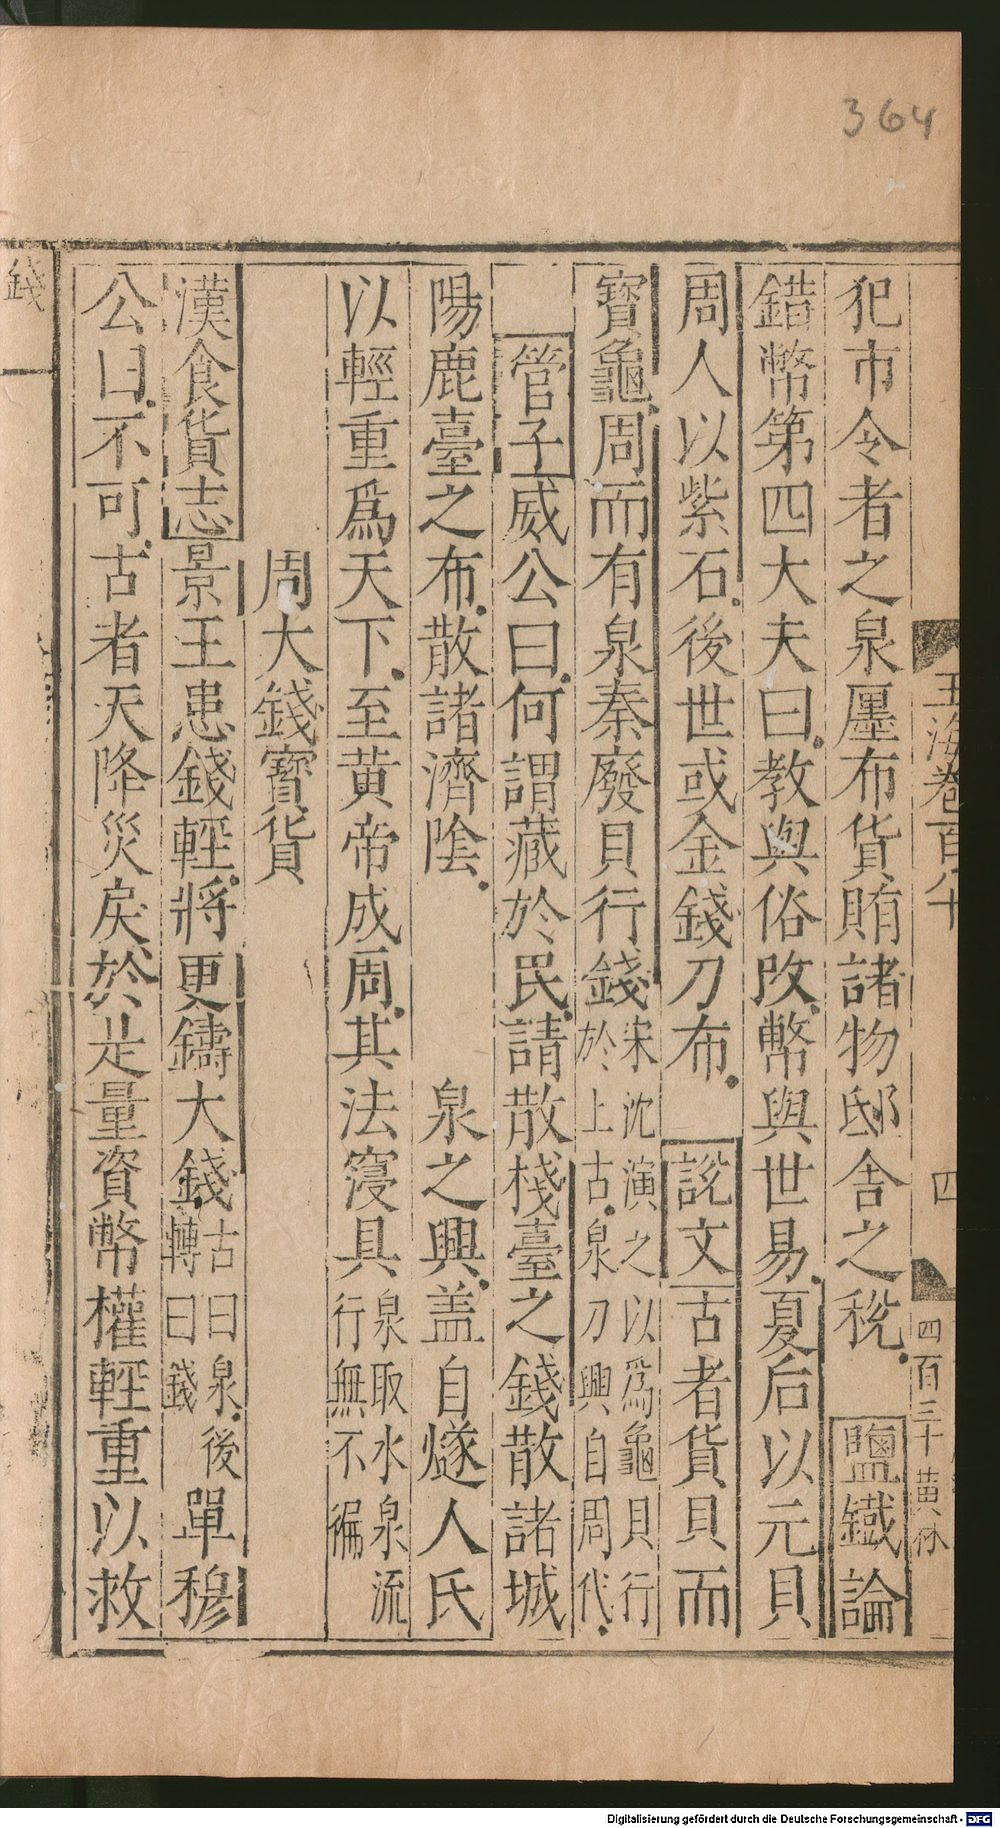 364
玉海卷百八十
四
四百三十
犯市令者之泉廛布貨賄諸物邸舍之稅鹽鐵論
錯幣第四大夫曰教與俗改幣與世易夏后以元貝
周人以紫石後世或金錢刀布說文古者貨貝而
寶龜周而有泉秦廢貝行錢宋沈演之以爲龜貝行
於上古泉刀興自周代
管子威公曰何謂藏於民請散棧臺之錢散諸城
陽鹿臺之布散諸濟陰 泉之興盖自燧人氏
以輕重爲天下至黄帝成周其法寖具泉取水泉流
行無不褊
周大錢寶貨
漢食貨志景王患錢輕將更鑄大錢古曰泉後
轉曰錢單穆
公曰不可古者天降災戾於是量資幣權輕重以救
錢
Digitalisierung gefördert durch die Deutsche Forschungsgemeinschaft - DFG